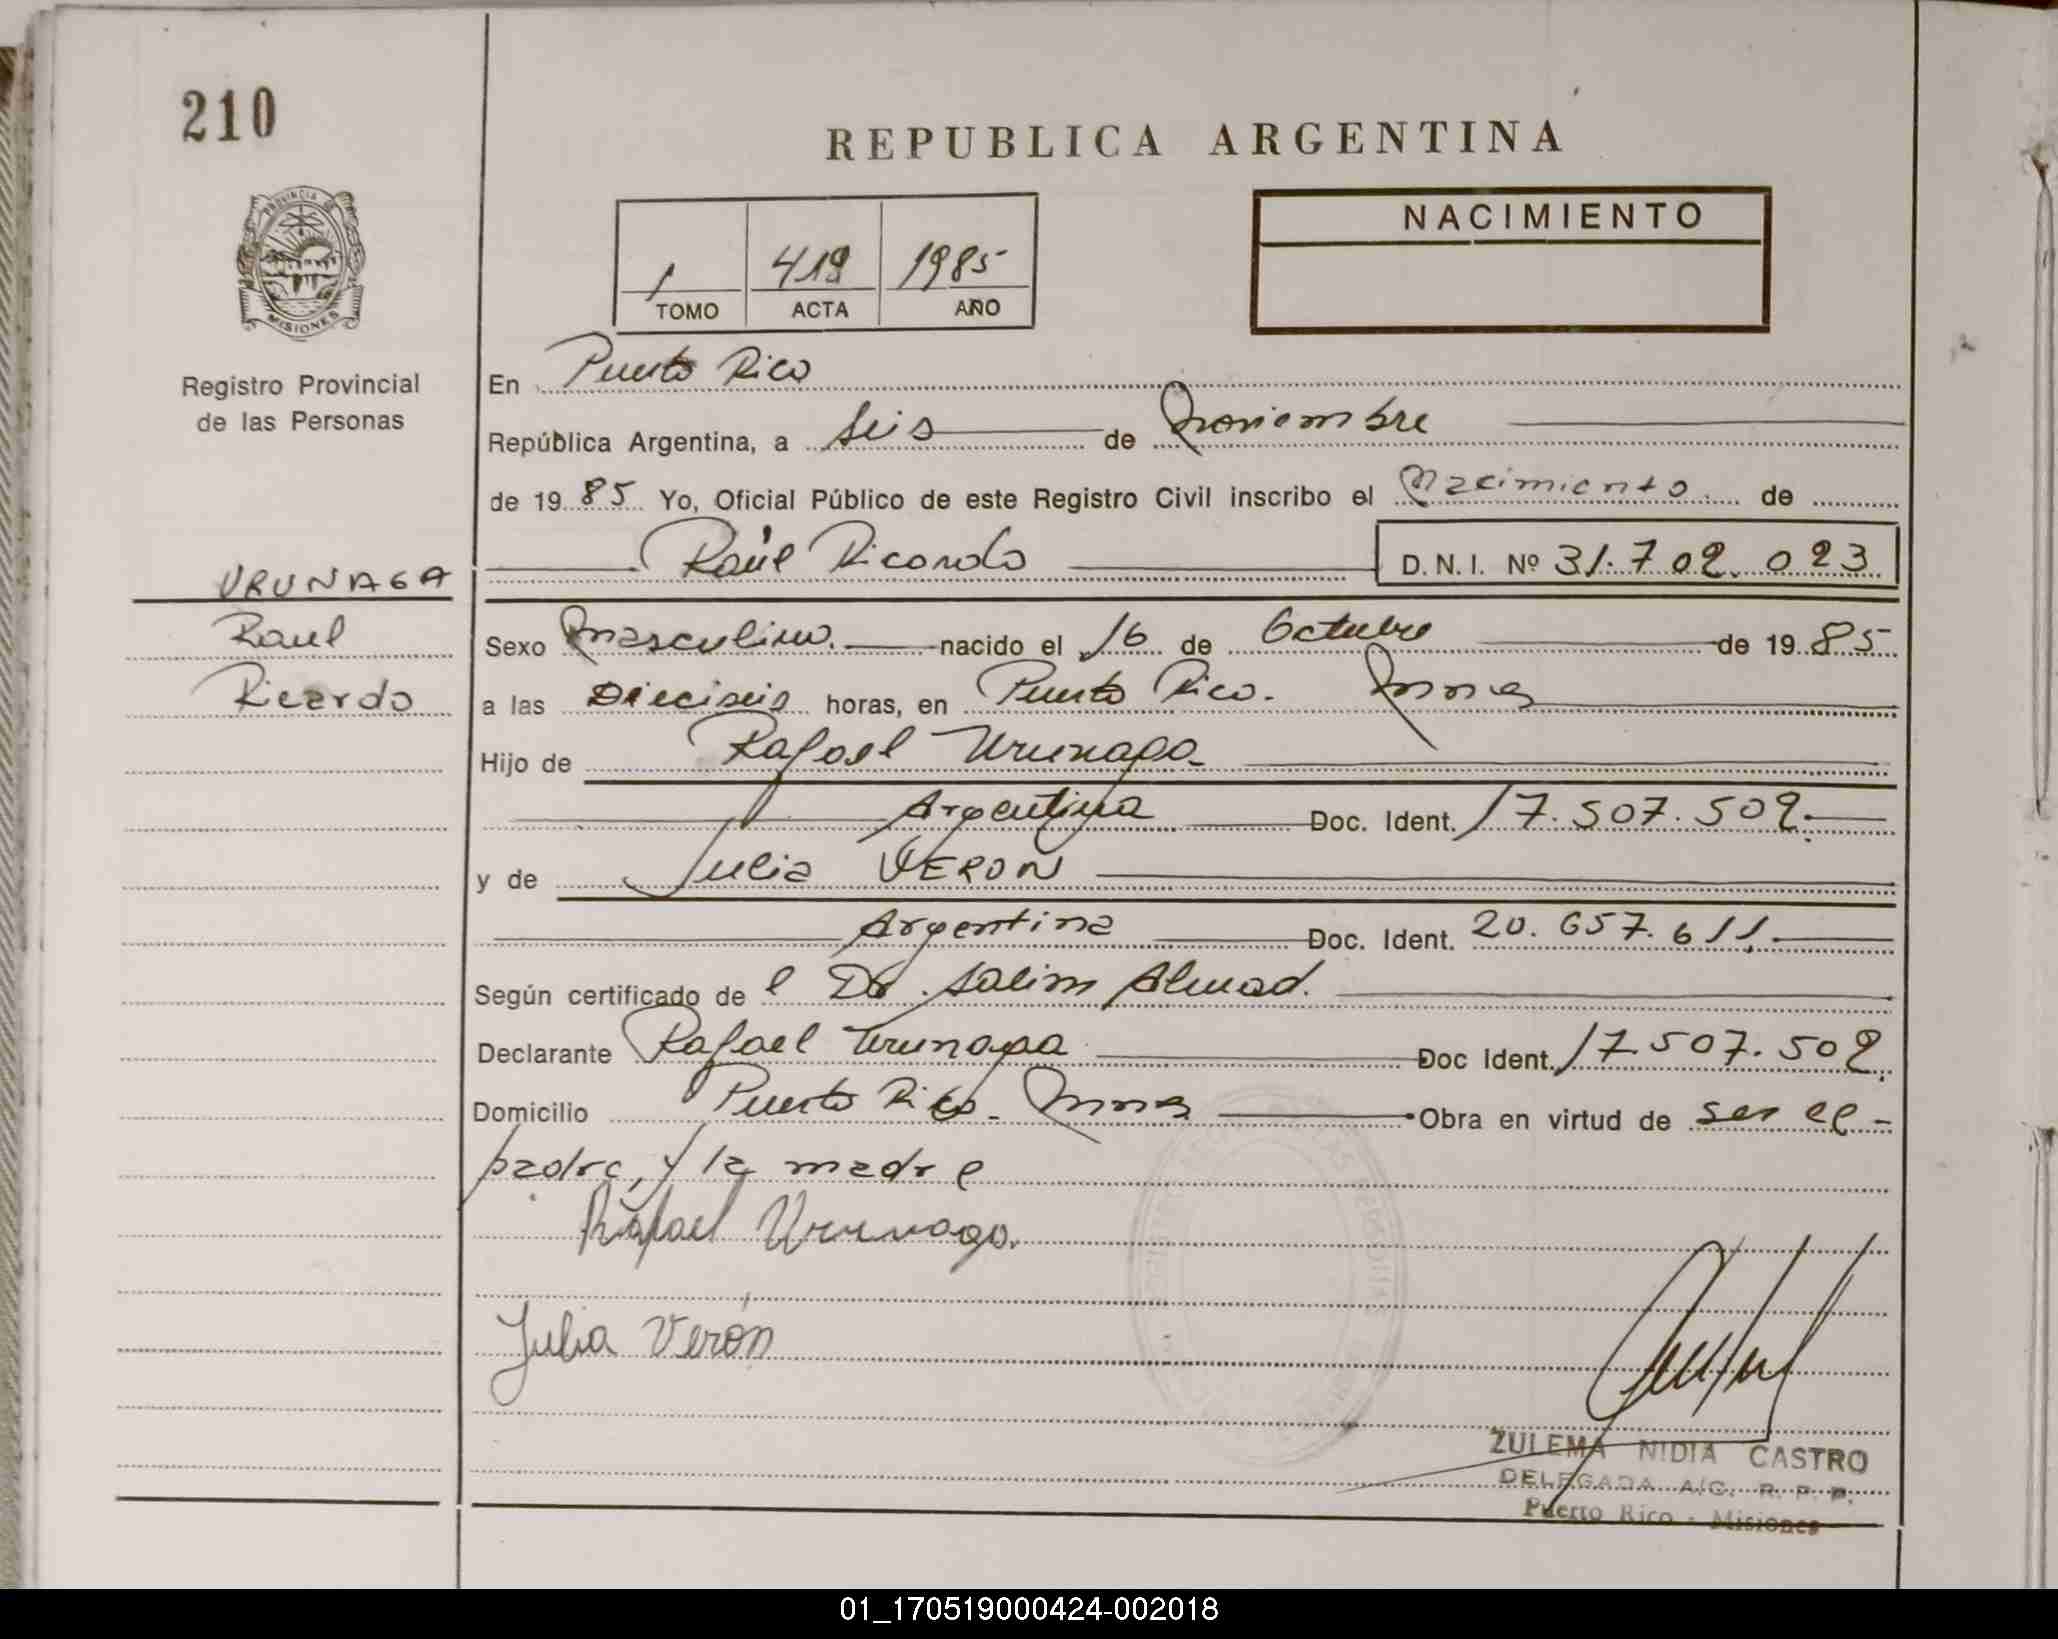 210
REPUBLICA ARGENTINA
PROVINCIA DE
MISIONES
Registro Provincial
de las Personas
1 419 1985
TOMO ACTA AÑO
NACIMIENTO
En Puerto Rico
República Argentina, a seis de noviembre
de 1985 Yo, Oficial Público de este Registro Civil inscribo el nacimiento de
Raúl Ricardo D.N.I. Nº 31.702.023
URUNAGA
Raul
Ricardo
Sexo masculino. nacido el 16 de Octubre de 1985
a las Dieciseis horas, en Puerto Rico. Mnes
Hijo de Rafael Urunaga
Argentina Doc. Ident. 17.507.502.
y de Julia VERON
Argentina Doc. Ident. 20.657.611.
Según certificado de l Dr. Salim Ahuad.
Declarante Rafael Urunaga Doc Ident. 17.507.502
Domicilio Puerto Rico - Mnes Obra en virtud de ser el -
padre, y la madre
Rafael Urunaga.
Julia Verón
ZULEMA NIDIA CASTRO
DELEGADA A/C. R. P. P.
Puerto Rico - Misiones
01_170519000424-002018